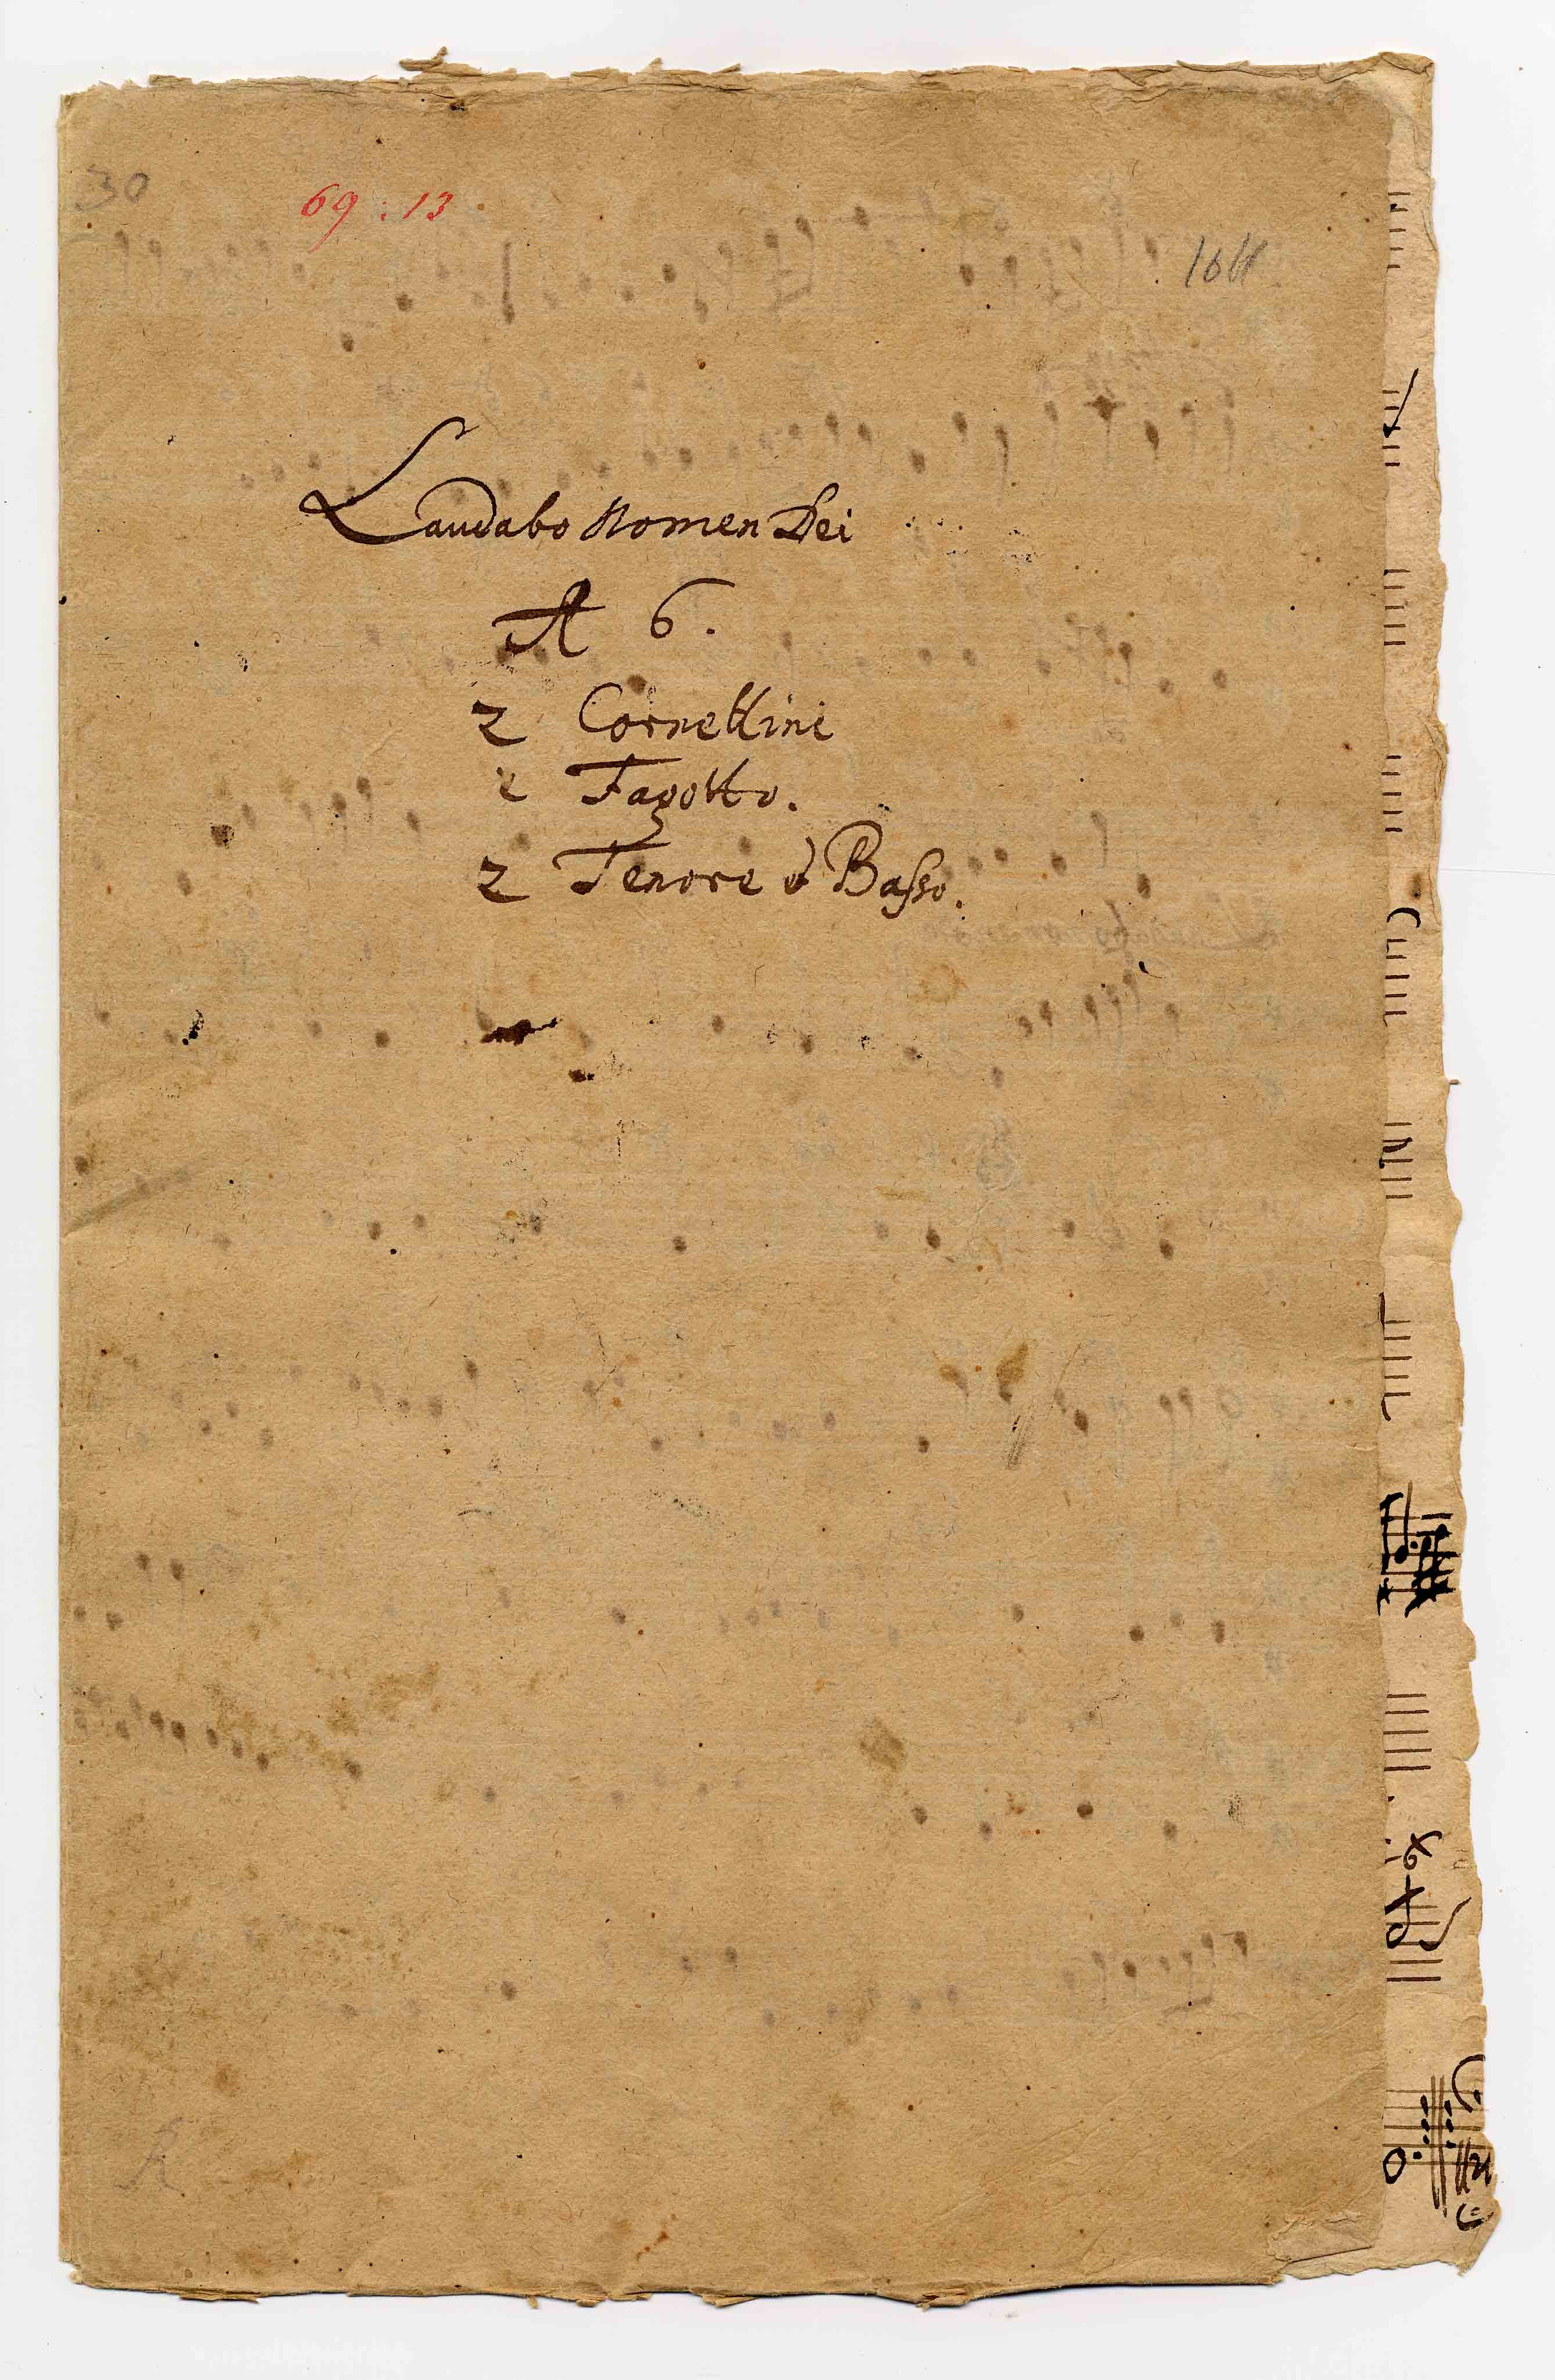 30
69 : 13
Laudabo Nomen Dei
A 6.
2 Cornettini
2 Fagotto.
2 Tenore è Basso.
R